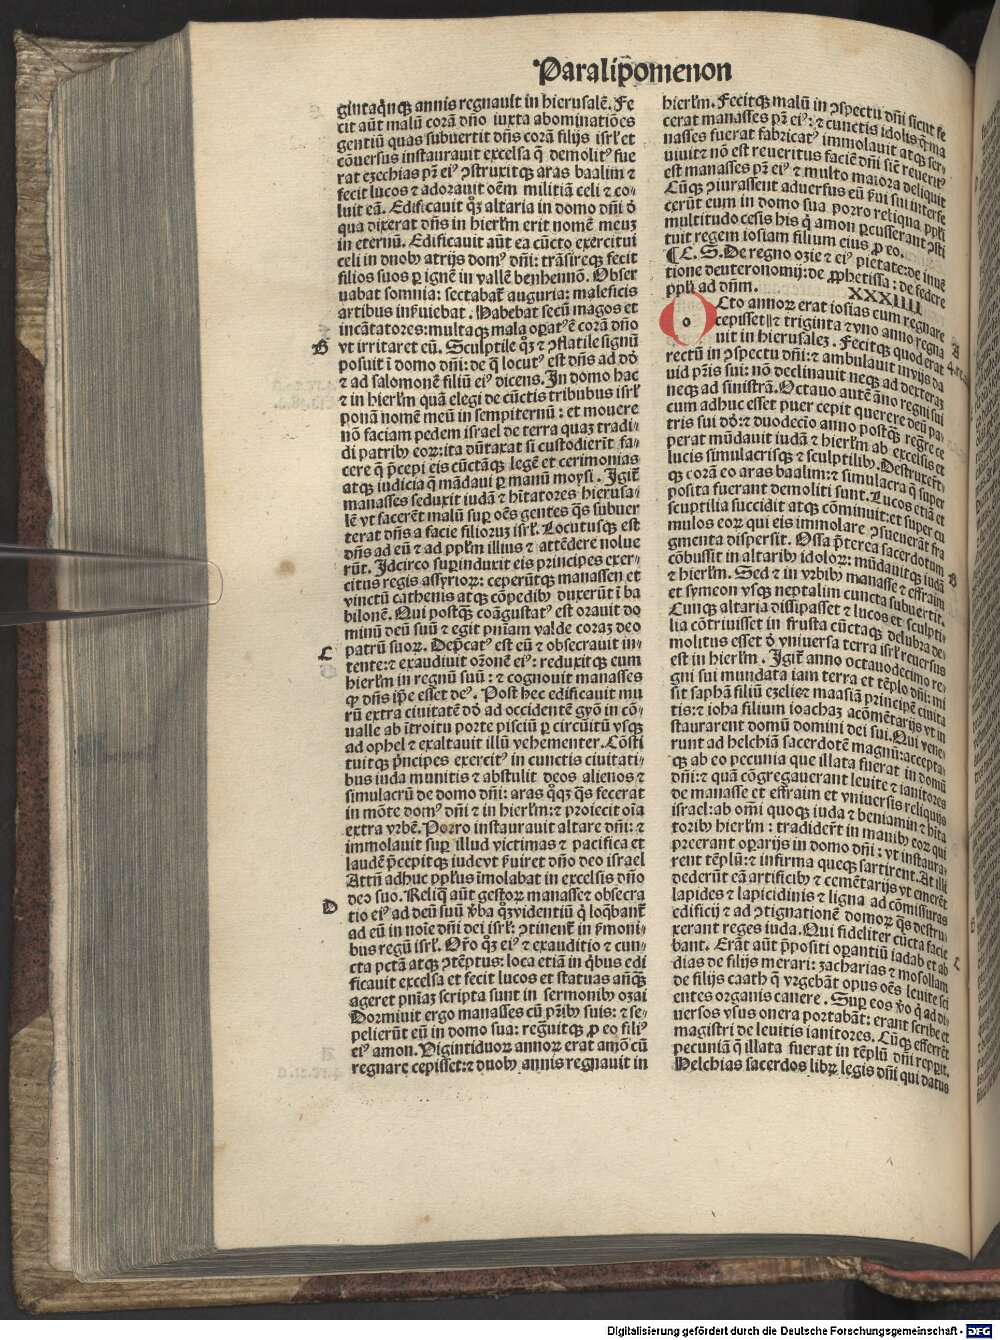 Paralip̄omenon
gintaq̄nq̄ꝫ annis regnauit in hierusalē. Fe
cit aūt malū corā dn̄o iuxta abominatiōes
gentiū quas subuertit dn̄s corā filijs isrl̓ et
cōuersus instaurauit excelsa q̄ demolitꝰ fue
rat ezechias pr̄ eiꝰ ꝯstruxitqꝫ aras baalim ⁊
fecit lucos ⁊ adorauit oēm militiā celi ⁊ co⸗
luit eā. Edificauit qꝫ altaria in domo dn̄i ď
qua dixerat dn̄s in hierl̓m erit nomē meuꝫ
in eternū. Edificauit aūt ea cūcto exercitui
celi in duobꝰ atrijs domꝰ dn̄i: trāsireqꝫ fecit
filios suos ꝑ ignē in vallē benhennō. Obser
uabat somnia: sectabat̄ auguria: maleficis
artibus inẜuiebat. Habebat secū magos et
incātatores: multaqꝫ mala oꝑatꝰ ē corā dn̄o
B
vt irritaret eū. Sculptile qꝫ ⁊ ꝯflatile signū
posuit ī domo dn̄i: de q̄ locutꝰ est dn̄s ad dō
⁊ ad salomonē filiū eiꝰ dicens. In domo hac
⁊ in hierl̓m quā elegi de cūctis tribubus isrl̓
ponā nomē meū in sempiternū: et mouere
nō faciam pedem israel de terra quaꝫ tradi⸗
di patribꝰ eoꝝ: ita dūtaxat si custodierīt fa⸗
cere q̄ p̄cepi eis cūctāqꝫ legē et cerimonias
atqꝫ iudicia q̄ mādaui ꝑ manū moysi. Igit̄
manasses seduxit iudā ⁊ hītatores hierusa⸗
lē vt facerēt malū suꝑ oēs gentes q̄s subuer
terat dn̄s a facie filioruꝫ isrl̓. Locutusqꝫ est
dn̄s ad eū ⁊ ad ppl̓m illius ⁊ attēdere nolue
rūt. Idcirco suꝑinduxit eis principes exer⸗
citus regis assyrioꝝ: ceperūtqꝫ manassen et
vinctū cathenis atqꝫ cōpedibꝰ duxerūt ī ba
bilonē. Qui postqꝫ coāgustatꝰ est orauit do
minū deū suū ⁊ egit pn̄iam valde coraꝫ deo
C
patrū suoꝝ. Dep̄catꝰ est eū ⁊ obsecrauit in⸗
tente: ⁊ exaudiuit or̄onē eiꝰ: reduxitqꝫ eum
hierl̓m in regnū suū: ⁊ cognouit manasses
ꝙ dn̄s ip̄e esset deꝰ. Post hec edificauit mu
rū extra ciuitatē dō ad occidentē gyō in cō⸗
ualle ab ītroitu porte pisciū ꝑ circūitū vsqꝫ
ad ophel ⁊ exaltauit illū vehementer. Cōsti
tuitqꝫ p̄ncipes exercitꝰ in cunctis ciuitati⸗
bus iuda munitis ⁊ abstulit deos alienos ⁊
simulacrū de domo dn̄i: aras qꝫ q̄s fecerat
in mōte domꝰ dn̄i ⁊ in hierl̓m: ⁊ proiecit oīa
extra vrbē. Porro instaurauit altare dn̄i: ⁊
immolauit suꝑ illud victimas ⁊ pacifica et
laudē p̄cepitqꝫ iude vt ẜuiret dn̄o deo israel
Attn̄ adhuc ppl̓us īmolabat in excelsis dn̄o
deo suo. Reliq̄ aūt gestoꝝ manasse ⁊ obsecra
D
tio eiꝰ ad deū suū v̓ba qꝫ videntiū q̄ loq̄bant̄
ad eū in noīe dn̄i dei isrl̓: ꝯtinent̄ in ẜmoni⸗
bus regū isrl̓. Or̄o qꝫ eiꝰ ⁊ exauditio ⁊ cun⸗
cta pctā atqꝫ ꝯtēptus: loca etiā in q̄bus edi
ficauit excelsa et fecit lucos et statuas añqꝫ
ageret pn̄iaꝫ scripta sunt in sermonibꝰ ozai
Dormiuit ergo manasses cū pr̄ibꝰ suis: ⁊ se⸗
pelierūt eū in domo sua: regnuitqꝫ ꝓ eo filiꝰ
eiꝰ amon. Vigintiduoꝝ annoꝝ erat amō cū
regnare cepisset: ⁊ duobꝰ annis regnauit in
hierl̓m. Fecitqꝫ malū in ꝯspectu dn̄i sicut fe
cerat manasses pr̄ eiꝰ: ⁊ cunctis idolis q̄ ma
nasses fuerat fabricatꝰ immolauit atqꝫ ser⸗
uiuit ⁊ nō est reueritus faciē dn̄i sic̄ reueritꝰ
est manasses pr̄ eiꝰ ⁊ multo maiora deliquit
Cūqꝫ ꝯiurassent aduersus eū ẜui sui interfe
cerūt eum in domo sua porro reliqua ppl̓i
multitudo cesis his q̄ amon ꝑcusserant ꝯsti
tuit regem iosiam filium eius ꝓ eo.
¶ C. S. De regno ozie ⁊ eiꝰ pietate: de inuē
tione deuteronomij: de ꝓphetissa: de federe
ppl̓i ad dn̄m. XXXIIII
Octo annoꝝ erat iosias cum regnare
A
cepisset ⁊ triginta ⁊ vno anno regna
uit in hierusaleꝫ. Fecitqꝫ quod erat
rectū in ꝯspectu dn̄i: ⁊ ambulauit in vijs da
uid pr̄is sui: nō declinauit neqꝫ ad dexteraꝫ
neqꝫ ad sinistrā. Octauo autē āno regni sui
cum adhuc esset puer cepit querere deū pa⸗
tris sui dō: ⁊ duodecīo anno postqꝫ regr̄e ce
perat mūdauit iudā ⁊ hierl̓m ab excelsis et
lucis simulacrisqꝫ ⁊ sculptilibꝰ. Destruxer̄t⸗
qꝫ corā eo aras baalim: ⁊ simulacra q̄ super
posita fuerant demoliti sunt. Lucos etiā et
scuptilia succidit atqꝫ cōminuit: et super cu
mulos eoꝝ qui eis immolare ꝯsueuerāt fra
gmenta dispersit. Ossa p̄terea sacerdotum
cōbussit in altaribꝰ idoloꝝ: mūdauitqꝫ iudā
B
⁊ hierl̓m. Sed ⁊ in vrbibꝰ manasse ⁊ effraim
et symeon vsqꝫ neptalim cuncta subuertit.
Cunqꝫ altaria dissipasset ⁊ lucos et sculpti⸗
lia cōtriuisset in frusta cūctaqꝫ delubra de⸗
molitus esset ď vniuersa terra isrl̓ reuersus
est in hierl̓m. Igit̄ anno octauodecimo re⸗
gni sui mundata iam terra et tēplo dn̄i: mi
sit saphā filiū ezelieꝫ maasiā principē ciuita
tis: ⁊ ioha filium ioachaꝫ acōmētarijs vt in
staurarent domū domini dei sui. Qui vene⸗
runt ad helchiā sacerdotē magnū: accepta⸗
qꝫ ab eo pecunia que illata fuerat in domū
dn̄i: ⁊ quā cōgregauerant leuite ⁊ ianitores
de manasse et effraim et vniuersis reliquijs
israel: ab om̄i quoqꝫ iuda ⁊ beniamin ⁊ hīta
toribꝰ hierl̓m: tradider̄t in manibꝰ eoꝝ qui
preerant oꝑarijs in domo dn̄i: vt instaura⸗
rent tēplū: ⁊ infirma queqꝫ sartirent. At illi
dederūt eā artificibꝰ ⁊ cemētarijs vt emerēt
lapides ⁊ lapicidinis ⁊ ligna ad cōmissuras
edificij ⁊ ad ꝯtignationē domoꝝ q̄s destru⸗
xerant reges iuda. Qui fideliter cūcta facie
bant. Erāt aūt p̄positi oꝑantiū iadab et ab
C
dias de filijs merari: zacharias ⁊ mosollam
de filijs caath q̄ vrgebāt opus oēs leuite sci
entes organis canere. Suꝑ eos v̓o q̄ ad di⸗
uersos vsus onera portabāt: erant scribe et
magistri de leuitis ianitores. Cūqꝫ efferrēt
pecuniā q̄ illata fuerat in tēplū dn̄i repꝑit.
Helchias sacerdos libꝝ legis dn̄i qui datus
Digitalisierung gefördert durch die Deutsche Forschungsgemeinschaft - DFG